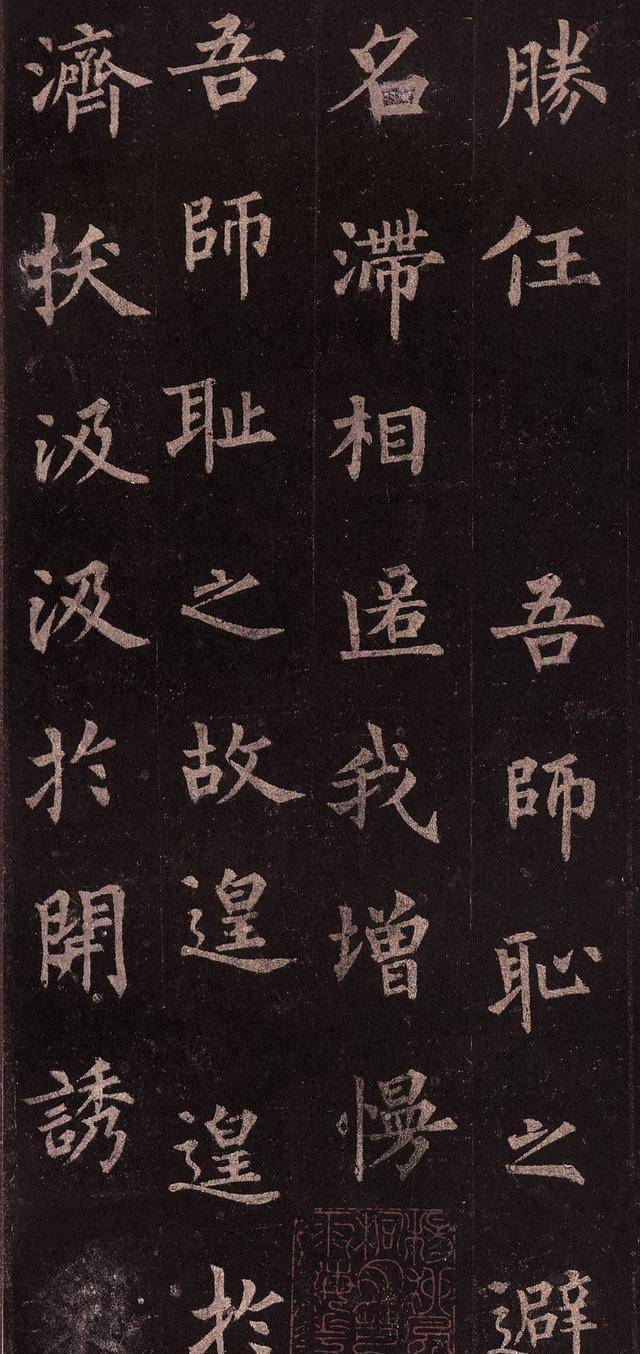 勝任吾師恥之避
名滯相匿我增慢
吾師耻之故遑遑於
濟扶汲汲於開誘